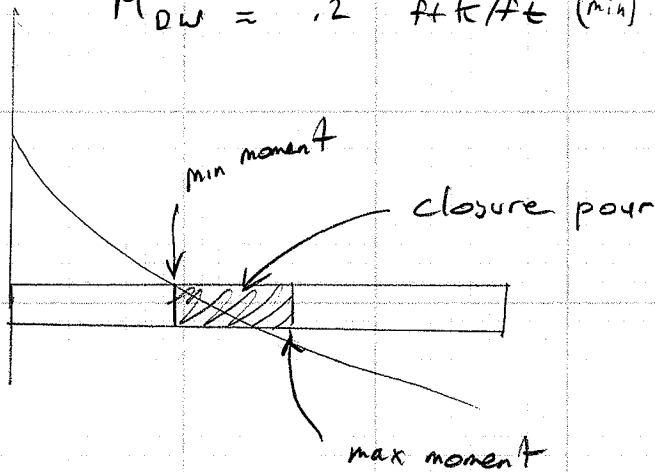 M DW ≈ .2 ft k/ft (min)
min moment
closure pour
max moment